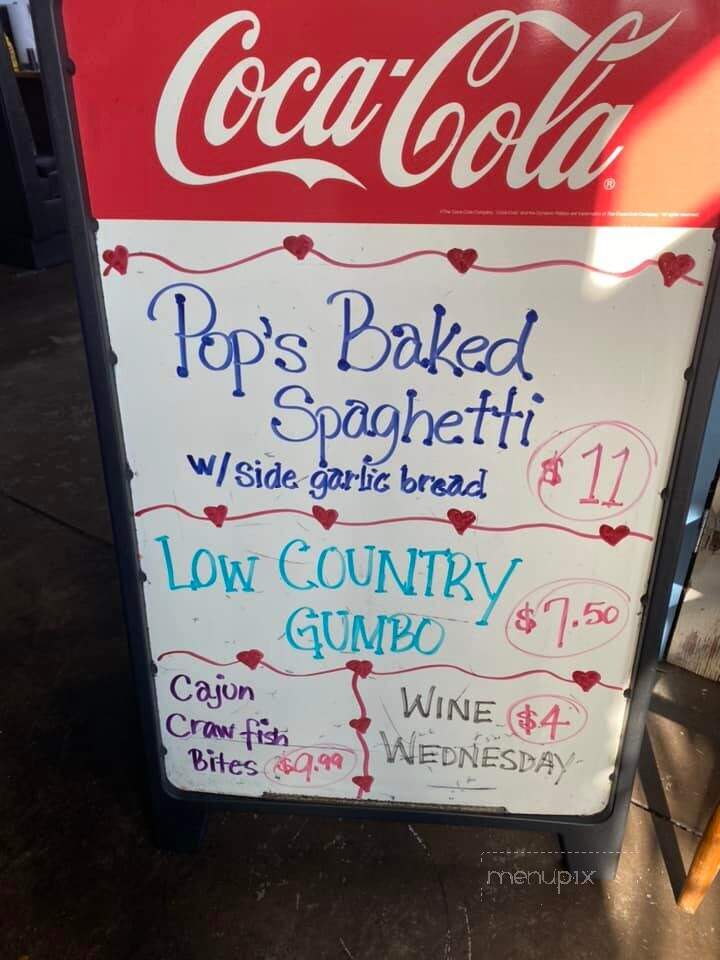 Coca-Cola
Pop's Baked
Spaghetti
w/ side garlic bread
$11
LOW COUNTRY
GUMBO
$7.50
Cajun
Crawfish
Bites $9.99
WINE $4
WEDNESDAY
menupix